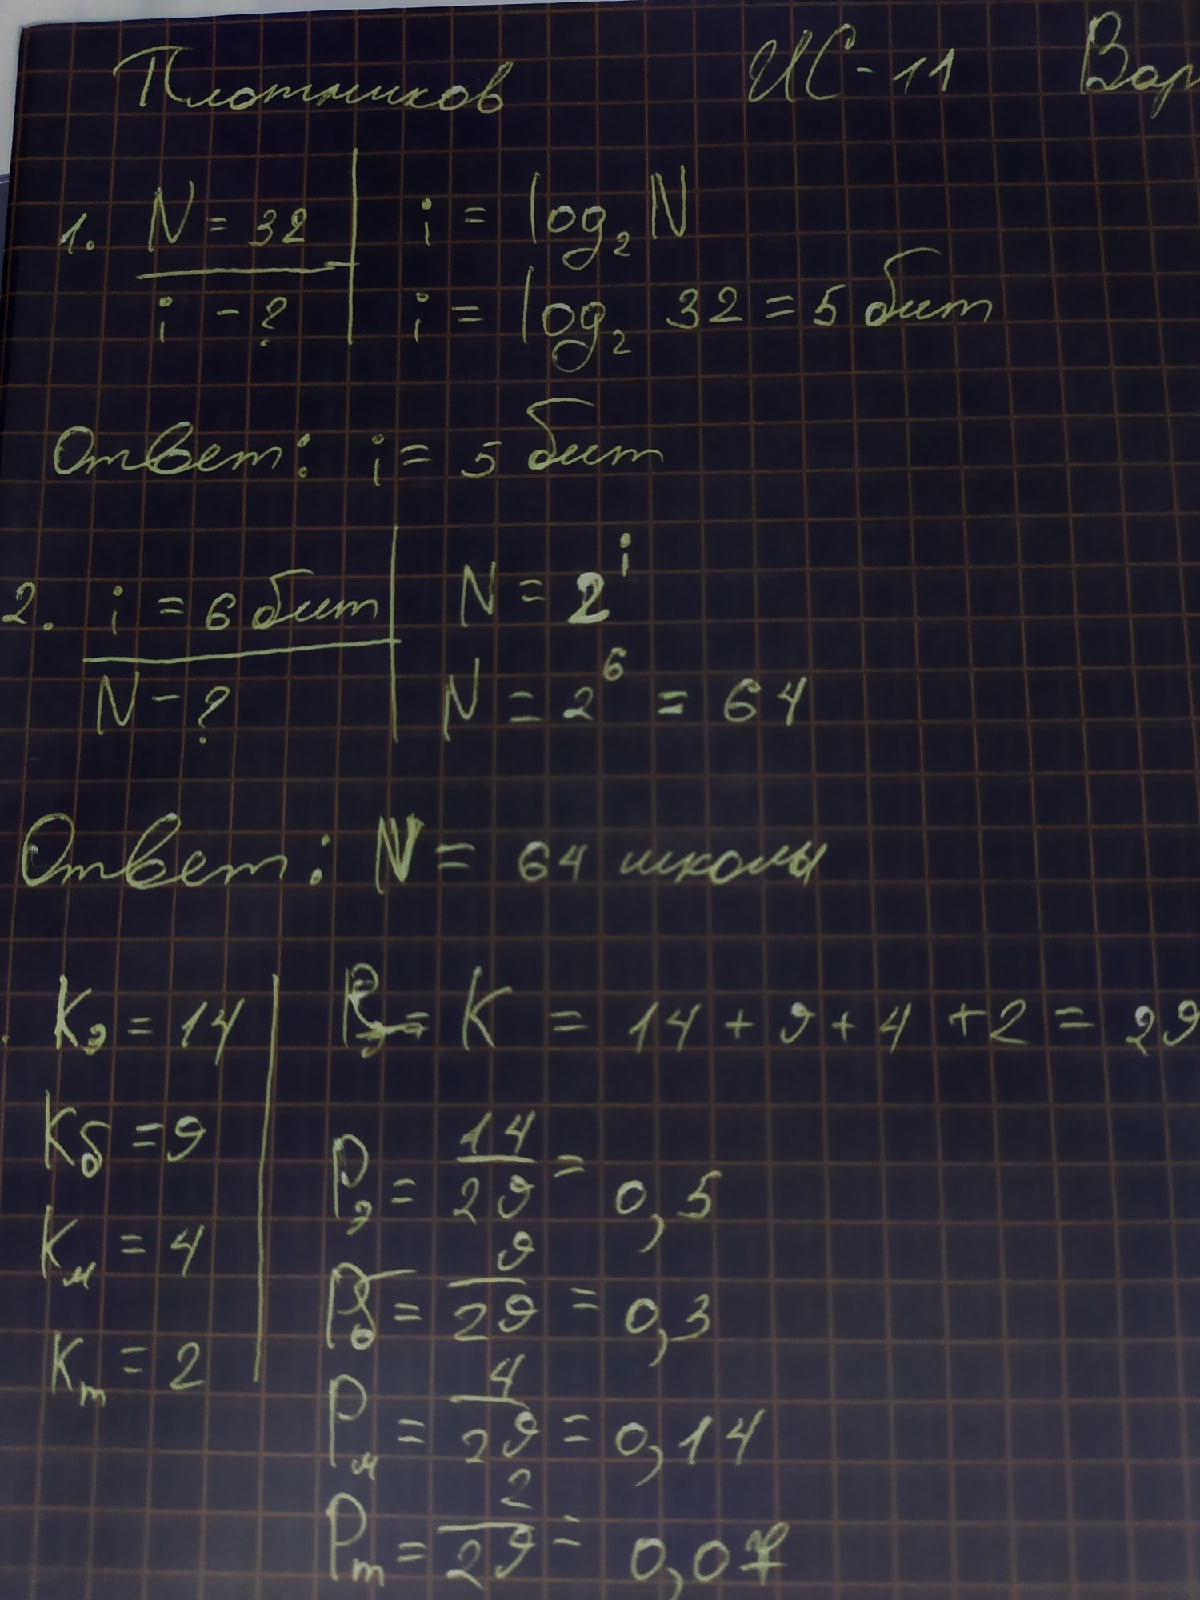 Плотников ИС-11 Вар
1. N = 32 i = log₂ N
i - ? i = log₂ 32 = 5 бит
Ответ: i = 5 бит
2. i = 6 бит N = 2ⁱ
N - ? N = 2⁶ = 64
Ответ: N = 64 школы
Kэ = 14 K = 14 + 9 + 4 + 2 = 29
Kб = 9 Pэ = 14/29 = 0,5
Kм = 4 Pб = 9/29 = 0,3
Kт = 2 Pм = 4/29 = 0,14
Pт = 2/29 = 0,07